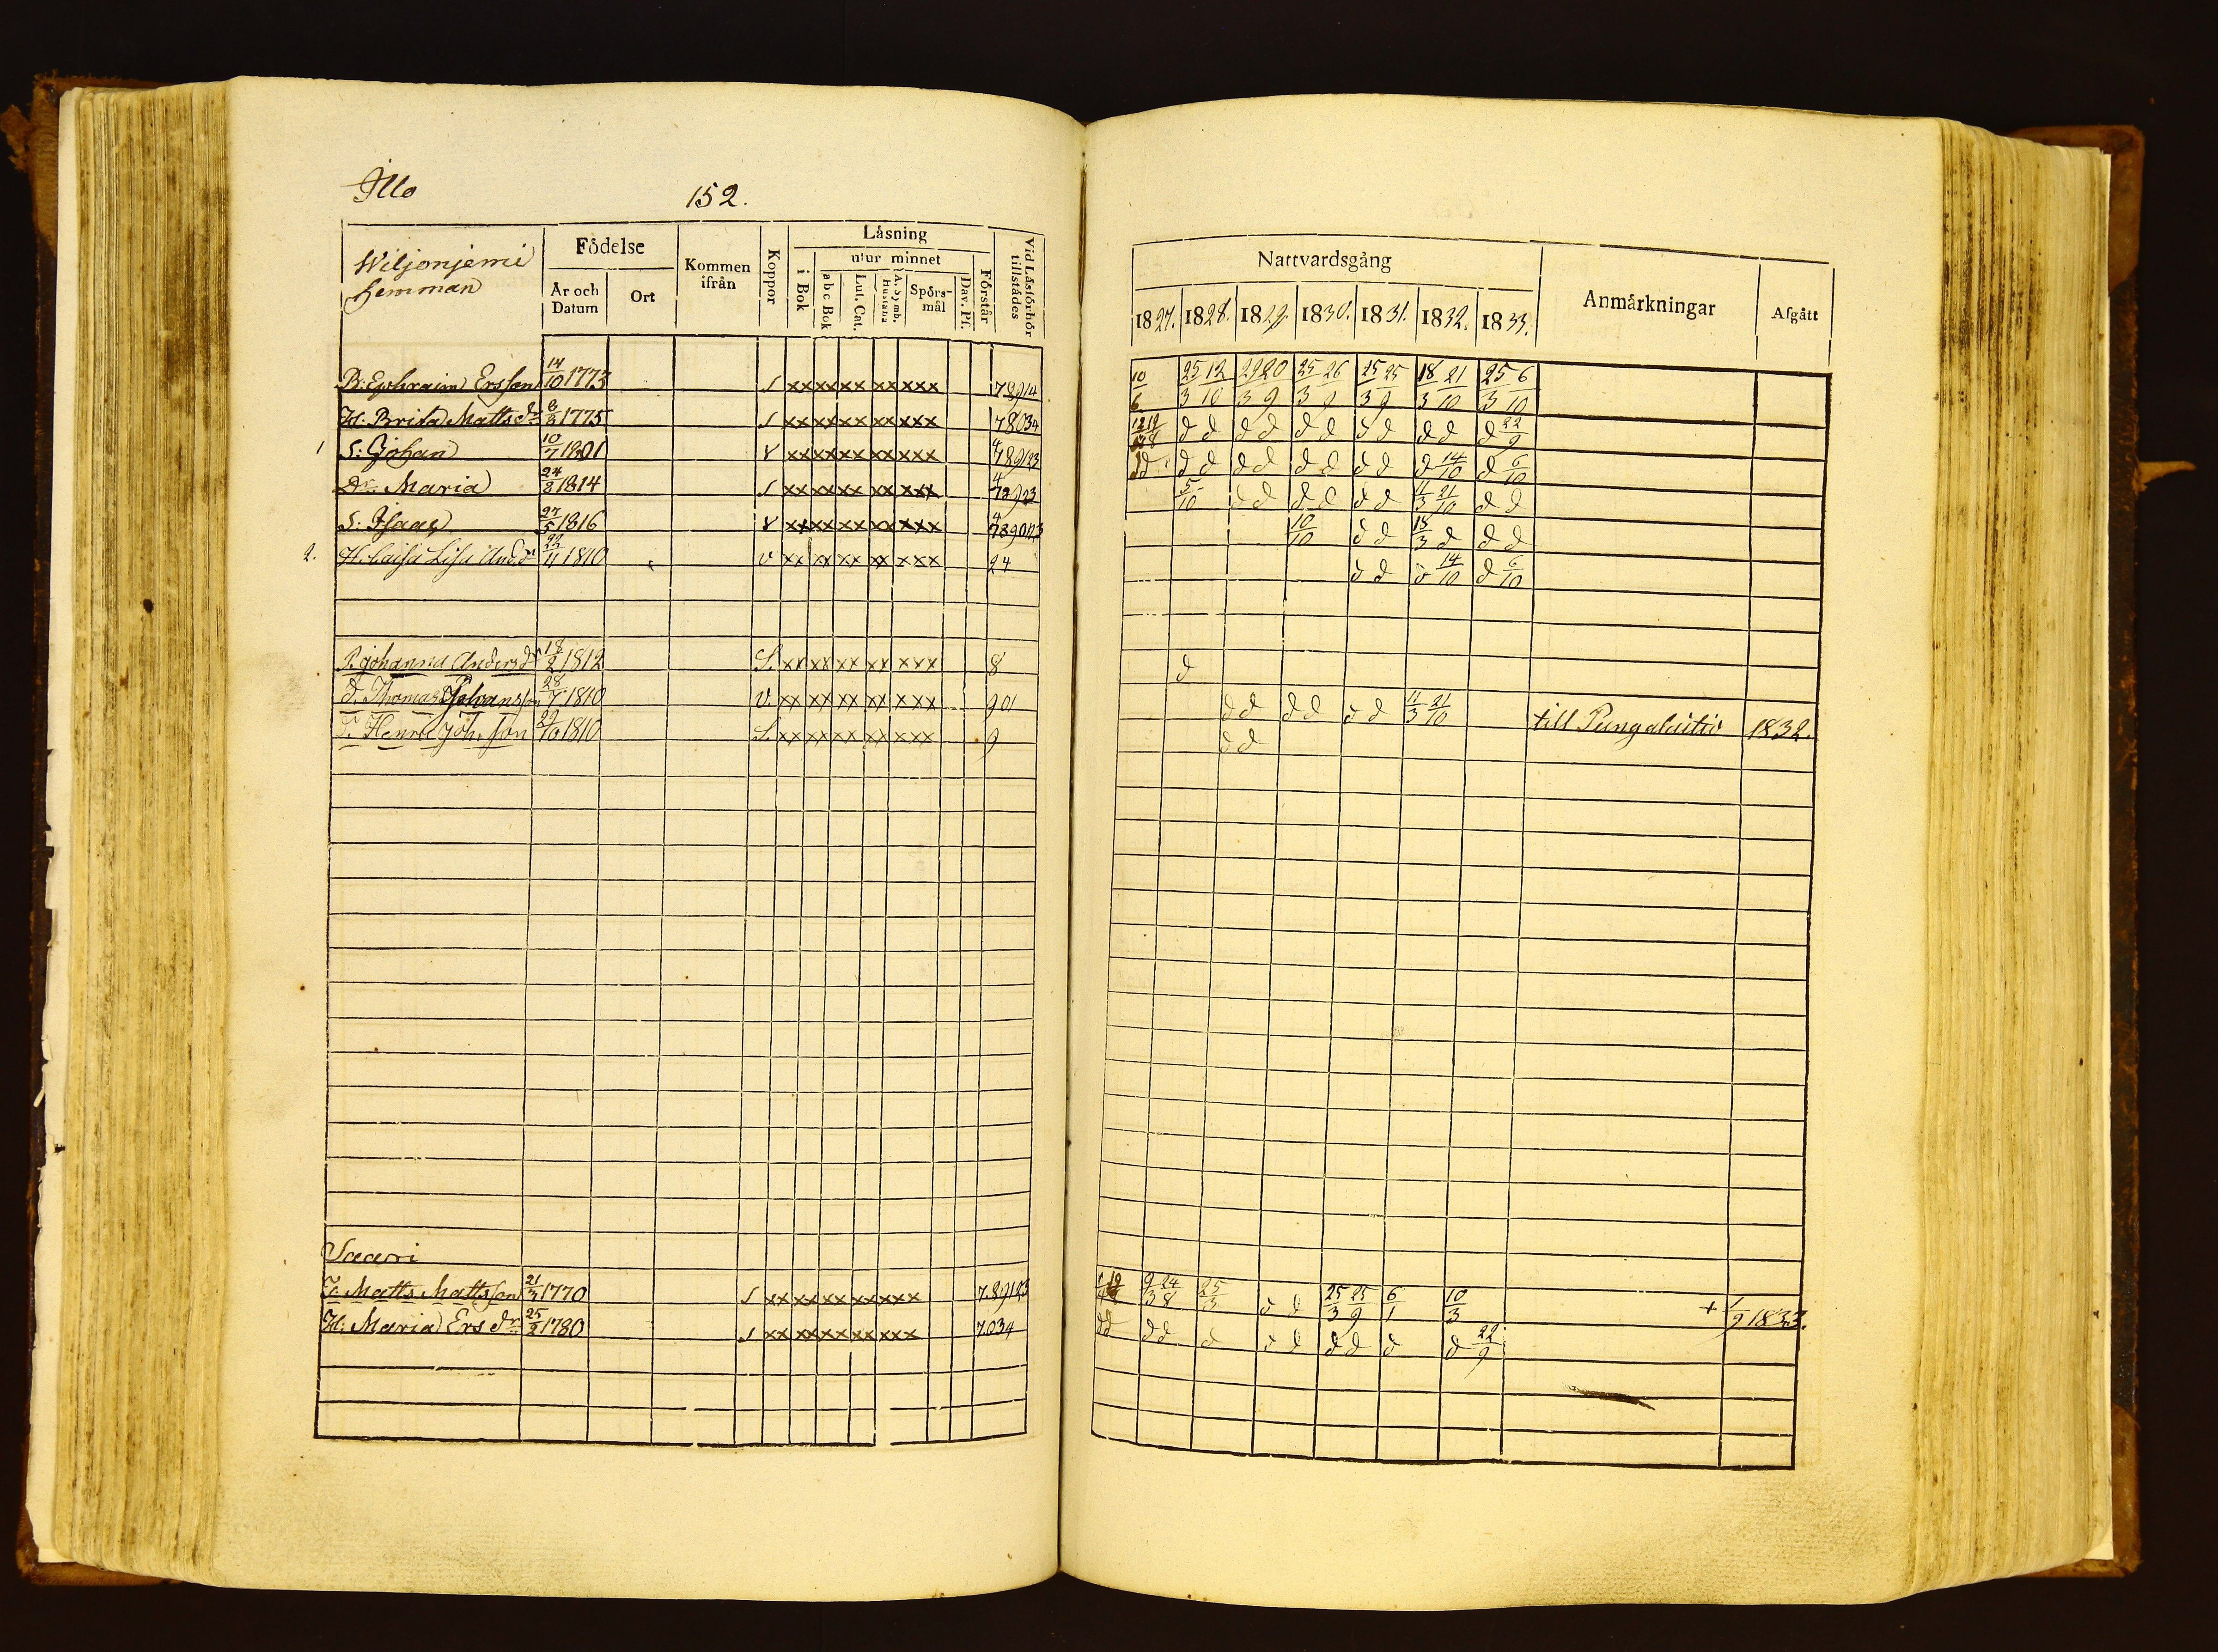 Illo
152.
Wiljonjemi
hemman
Födelse
År och Datum
Ort
Kommen ifrån
Koppor
Läsning
i Bok
utur minnet
abc Bok
Lut. Cat.
A. Symb. Hustafla
Spörs-mål
Dav. Pf.
Förstår
Vid Läsförhör tillstädes
B: Ephraim Ersson 14/10 1773 S xx xx xx xx xxx 78914
H: Brita Matts dr 8/2 1775 S xx xx xx xx xxx 78034
1 S: Johan 10/7 1801 V xx xx xx xx xxx
Dr Maria 24/2 1814 S xx xx xx xx xxx
S: Isaac 27/5 1816 V xx xx xx xx xxx
2. H. Caisa Lisa And.dr 22/11 1810 v xx xx xx xx xxx 24
P. Johanna Andersdr 18/2 1812 S. xx xx xx xx xxx 8
d. Thomas Johansson 28/7 1810 v. xx xx xx xx xxx 901
Henric Joh. son 29/10 1810 S. xx xx xx xx xxx 9
Saari
I: Matts Mattsson 21/3 1770 S xx xx xx xx xxx 789123
H: Maria Ers dr 25/2 1780 S xx xx xx xx xxx 7.034
Nattvardsgång
1827. 1828. 1829. 1830. 1831. 1832. 1833.
Anmärkningar
Afgått
10/6 25/3 12/10 29/3 20/9 25/3 26/9 25/3 25/9 18/3 21/10 25/3 6/10
d d d d d d d d d d d 22/9
dd d d d d d d d d d 14/10 d 6/10
5/10 d d d d d d 11/3 21/10 d d
10/10 d d 18/3 d d d
d d d 14/10 d 6/10
d
d d d d d d 11/3 21/10 till 1832.
d d
9/3 24/8 25/3 d d 25/3 25/9 6/1 10/3 + 1/9 1833.
dd dd d d d d d d d 22/9